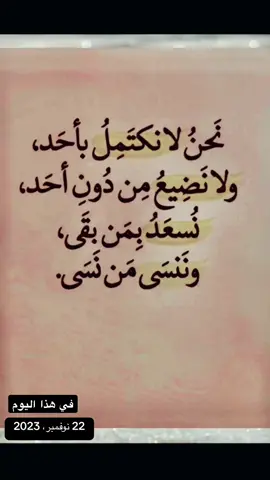 نَحنُ لا نكتَمِلُ بأحَد،
ولا نَضِيعُ مِن دُونِ أحَد،
نُسعَدُ بِمَن بقَى،
ونَنسَى مَن نَسَى.
في هذا اليوم
22 نوفمبر، 2023